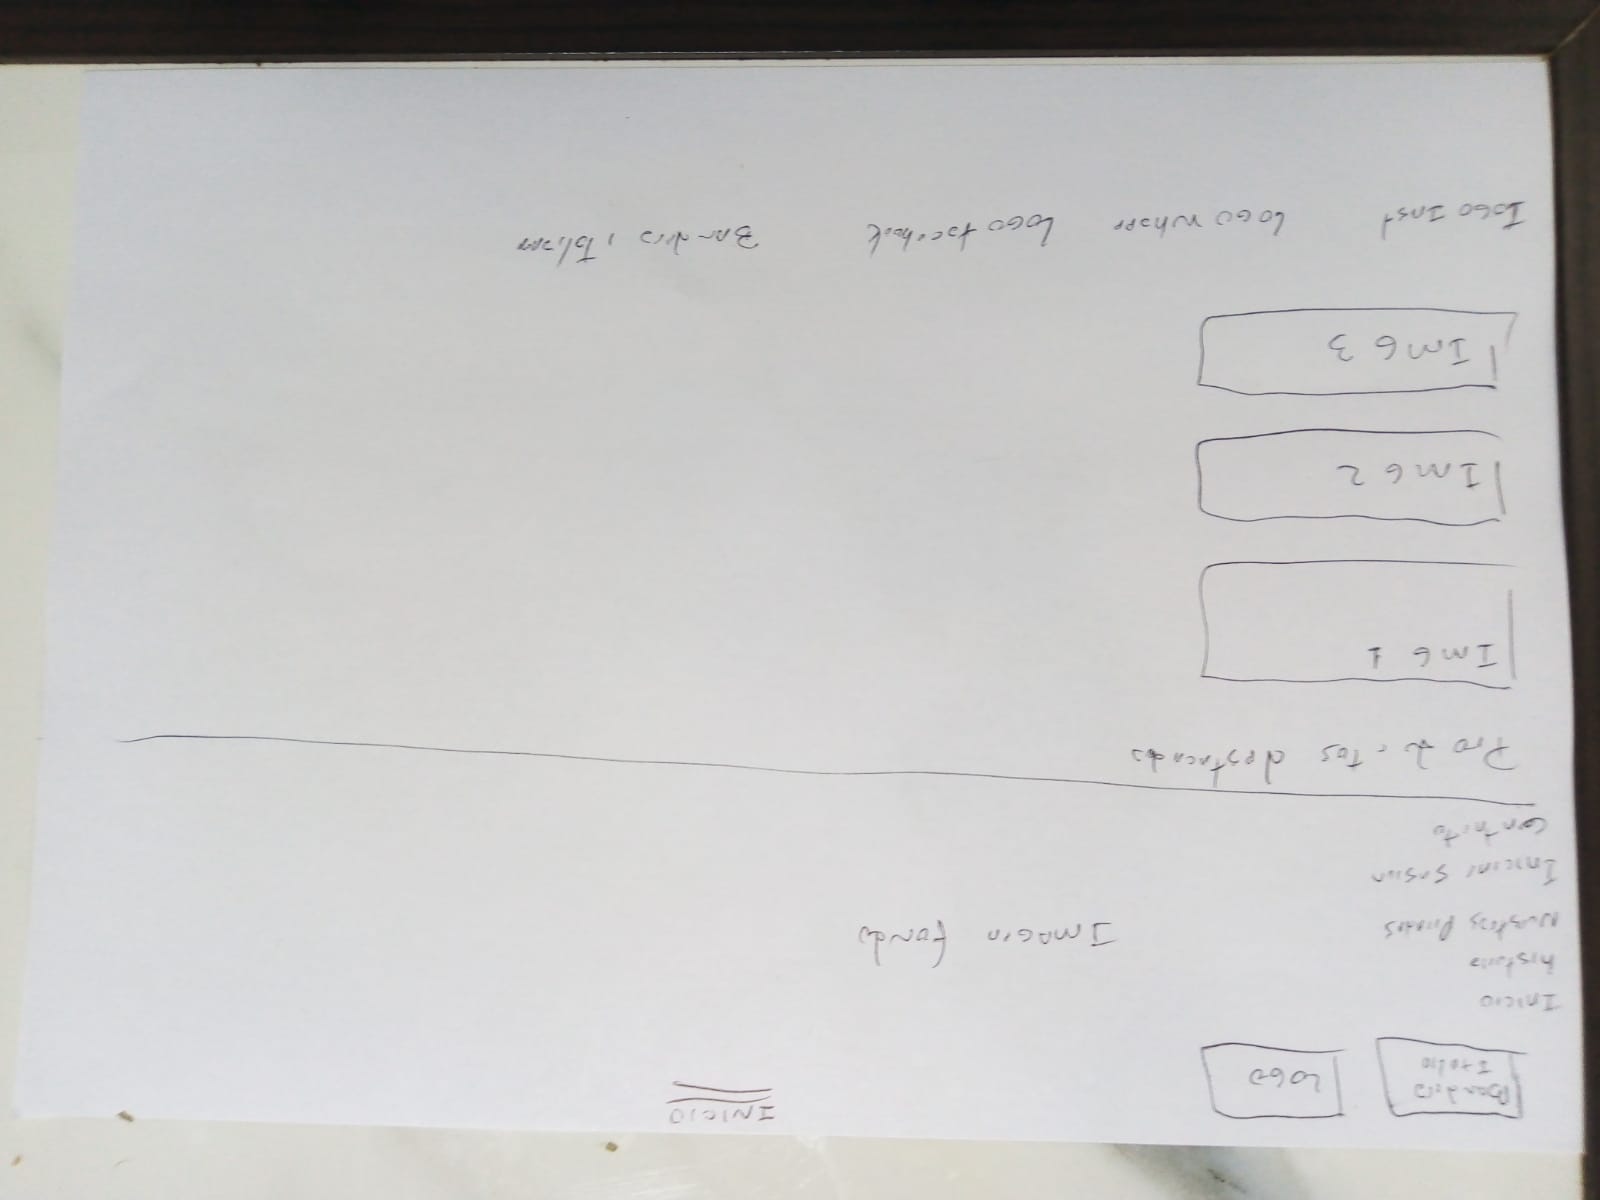 INICIO
Bandera
Italia
LOGO
Inicio
historia
Nuestras
Iniciar sesion
Contacto
Imagen fondo
Productos destacados
IMG 1
IMG 2
IMG 3
Logo Inst
Logo whapp
Logo facebook
Bandera italiana